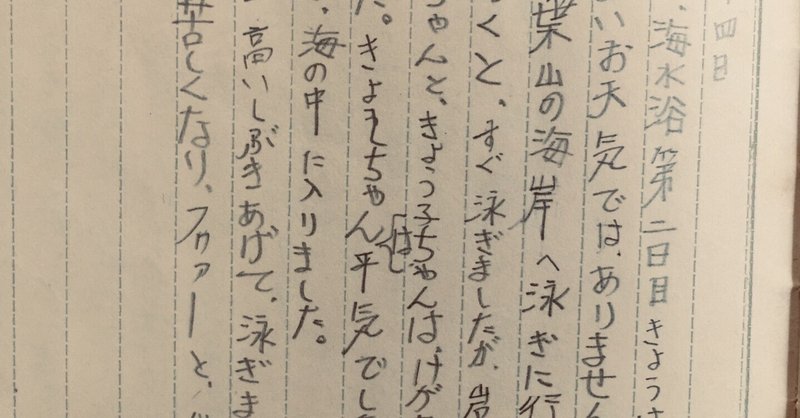 四日
、海水浴第二日目 きょうは
いお天気では、ありません
葉山の海岸へ泳ぎに行
くと、すぐ泳ぎましたが、岩
ちゃんと、きょう子ちゃんは、けが
た。ちゃんは平気でし
、海の中に入りました。
高いしぶきあげて、泳ぎま
苦しくなり、フワァーと、